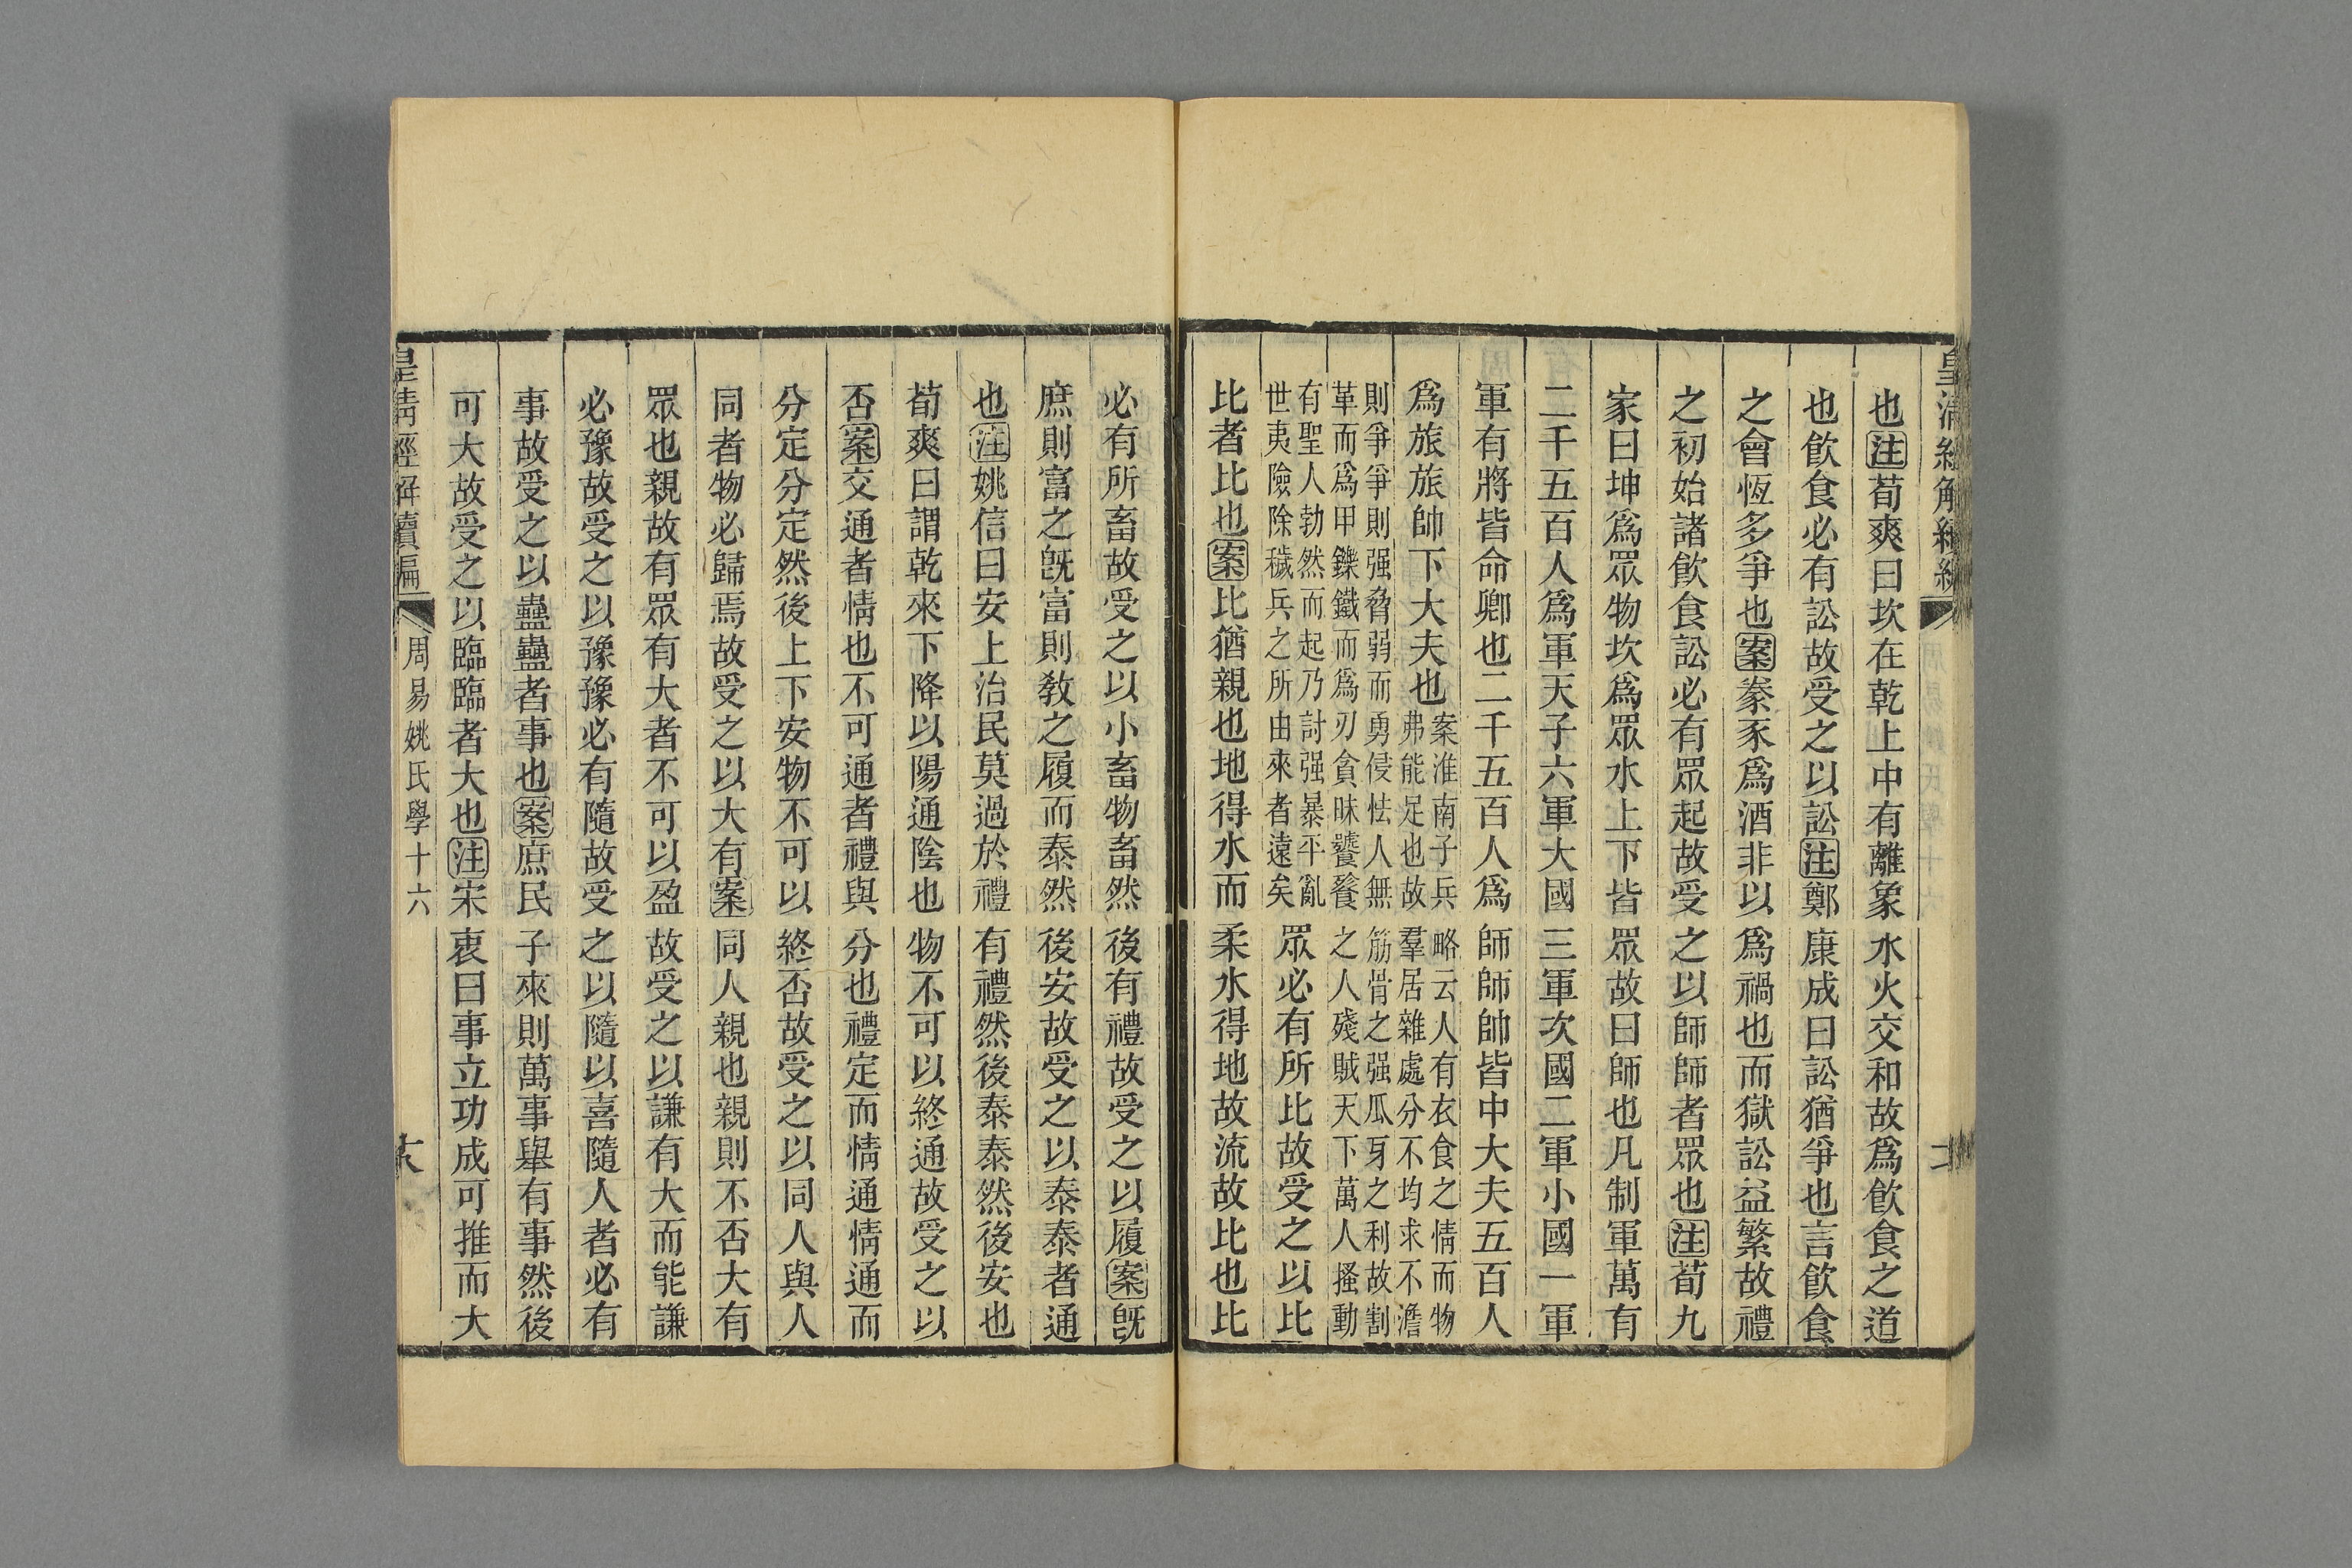 也注荀爽曰坎在乾上中有離象水火交和故爲飲食之道
也飲食必有訟故受之以訟注鄭康成曰訟猶爭也言飲食
之會恆多爭也案豢豕爲酒非以爲禍也而獄訟益繁故禮
之初始諸飲食訟必有眾起故受之以師師者眾也注荀九
家曰坤爲眾物坎爲眾水上下皆眾故曰師也凡制軍萬有
二千五百人爲軍天子六軍大國三軍次國二軍小國一軍
軍有將皆命卿也二千五百人爲師師帥皆中大夫五百人
爲旅旅帥下大夫也案淮南子兵略云人有衣食之情而物
弗能足也故羣居雜處分不均求不澹
則爭爭則强脅弱而勇侵怯人無筋骨之强瓜牙之利故割
革而爲甲鑠鐵而爲刃貪昧饕餮之人殘賊天下萬人搔動
有聖人勃然而起乃討强暴平亂
世夷險除穢兵之所由來者遠矣眾必有所比故受之以比
比者比也案比猶親也地得水而柔水得地故流故比也比
必有所畜故受之以小畜物畜然後有禮故受之以履案旣
庶則富之旣富則敎之履而泰然後安故受之以泰泰者通
也注姚信曰安上治民莫過於禮有禮然後泰泰然後安也
荀爽曰謂乾來下降以陽通陰也物不可以終通故受之以
否案交通者情也不可通者禮與分也禮定而情通情通而
分定分定然後上下安物不可以終否故受之以同人與人
同者物必歸焉故受之以大有案同人親也親則不否大有
眾也親故有眾有大者不可以盈故受之以謙有大而能謙
必豫故受之以豫豫必有隨故受之以隨以喜隨人者必有
事故受之以蠱蠱者事也案庶民子來則萬事舉有事然後
可大故受之以臨臨者大也注宋衷曰事立功成可推而大
皇淸經解續編
周易姚氏學十六